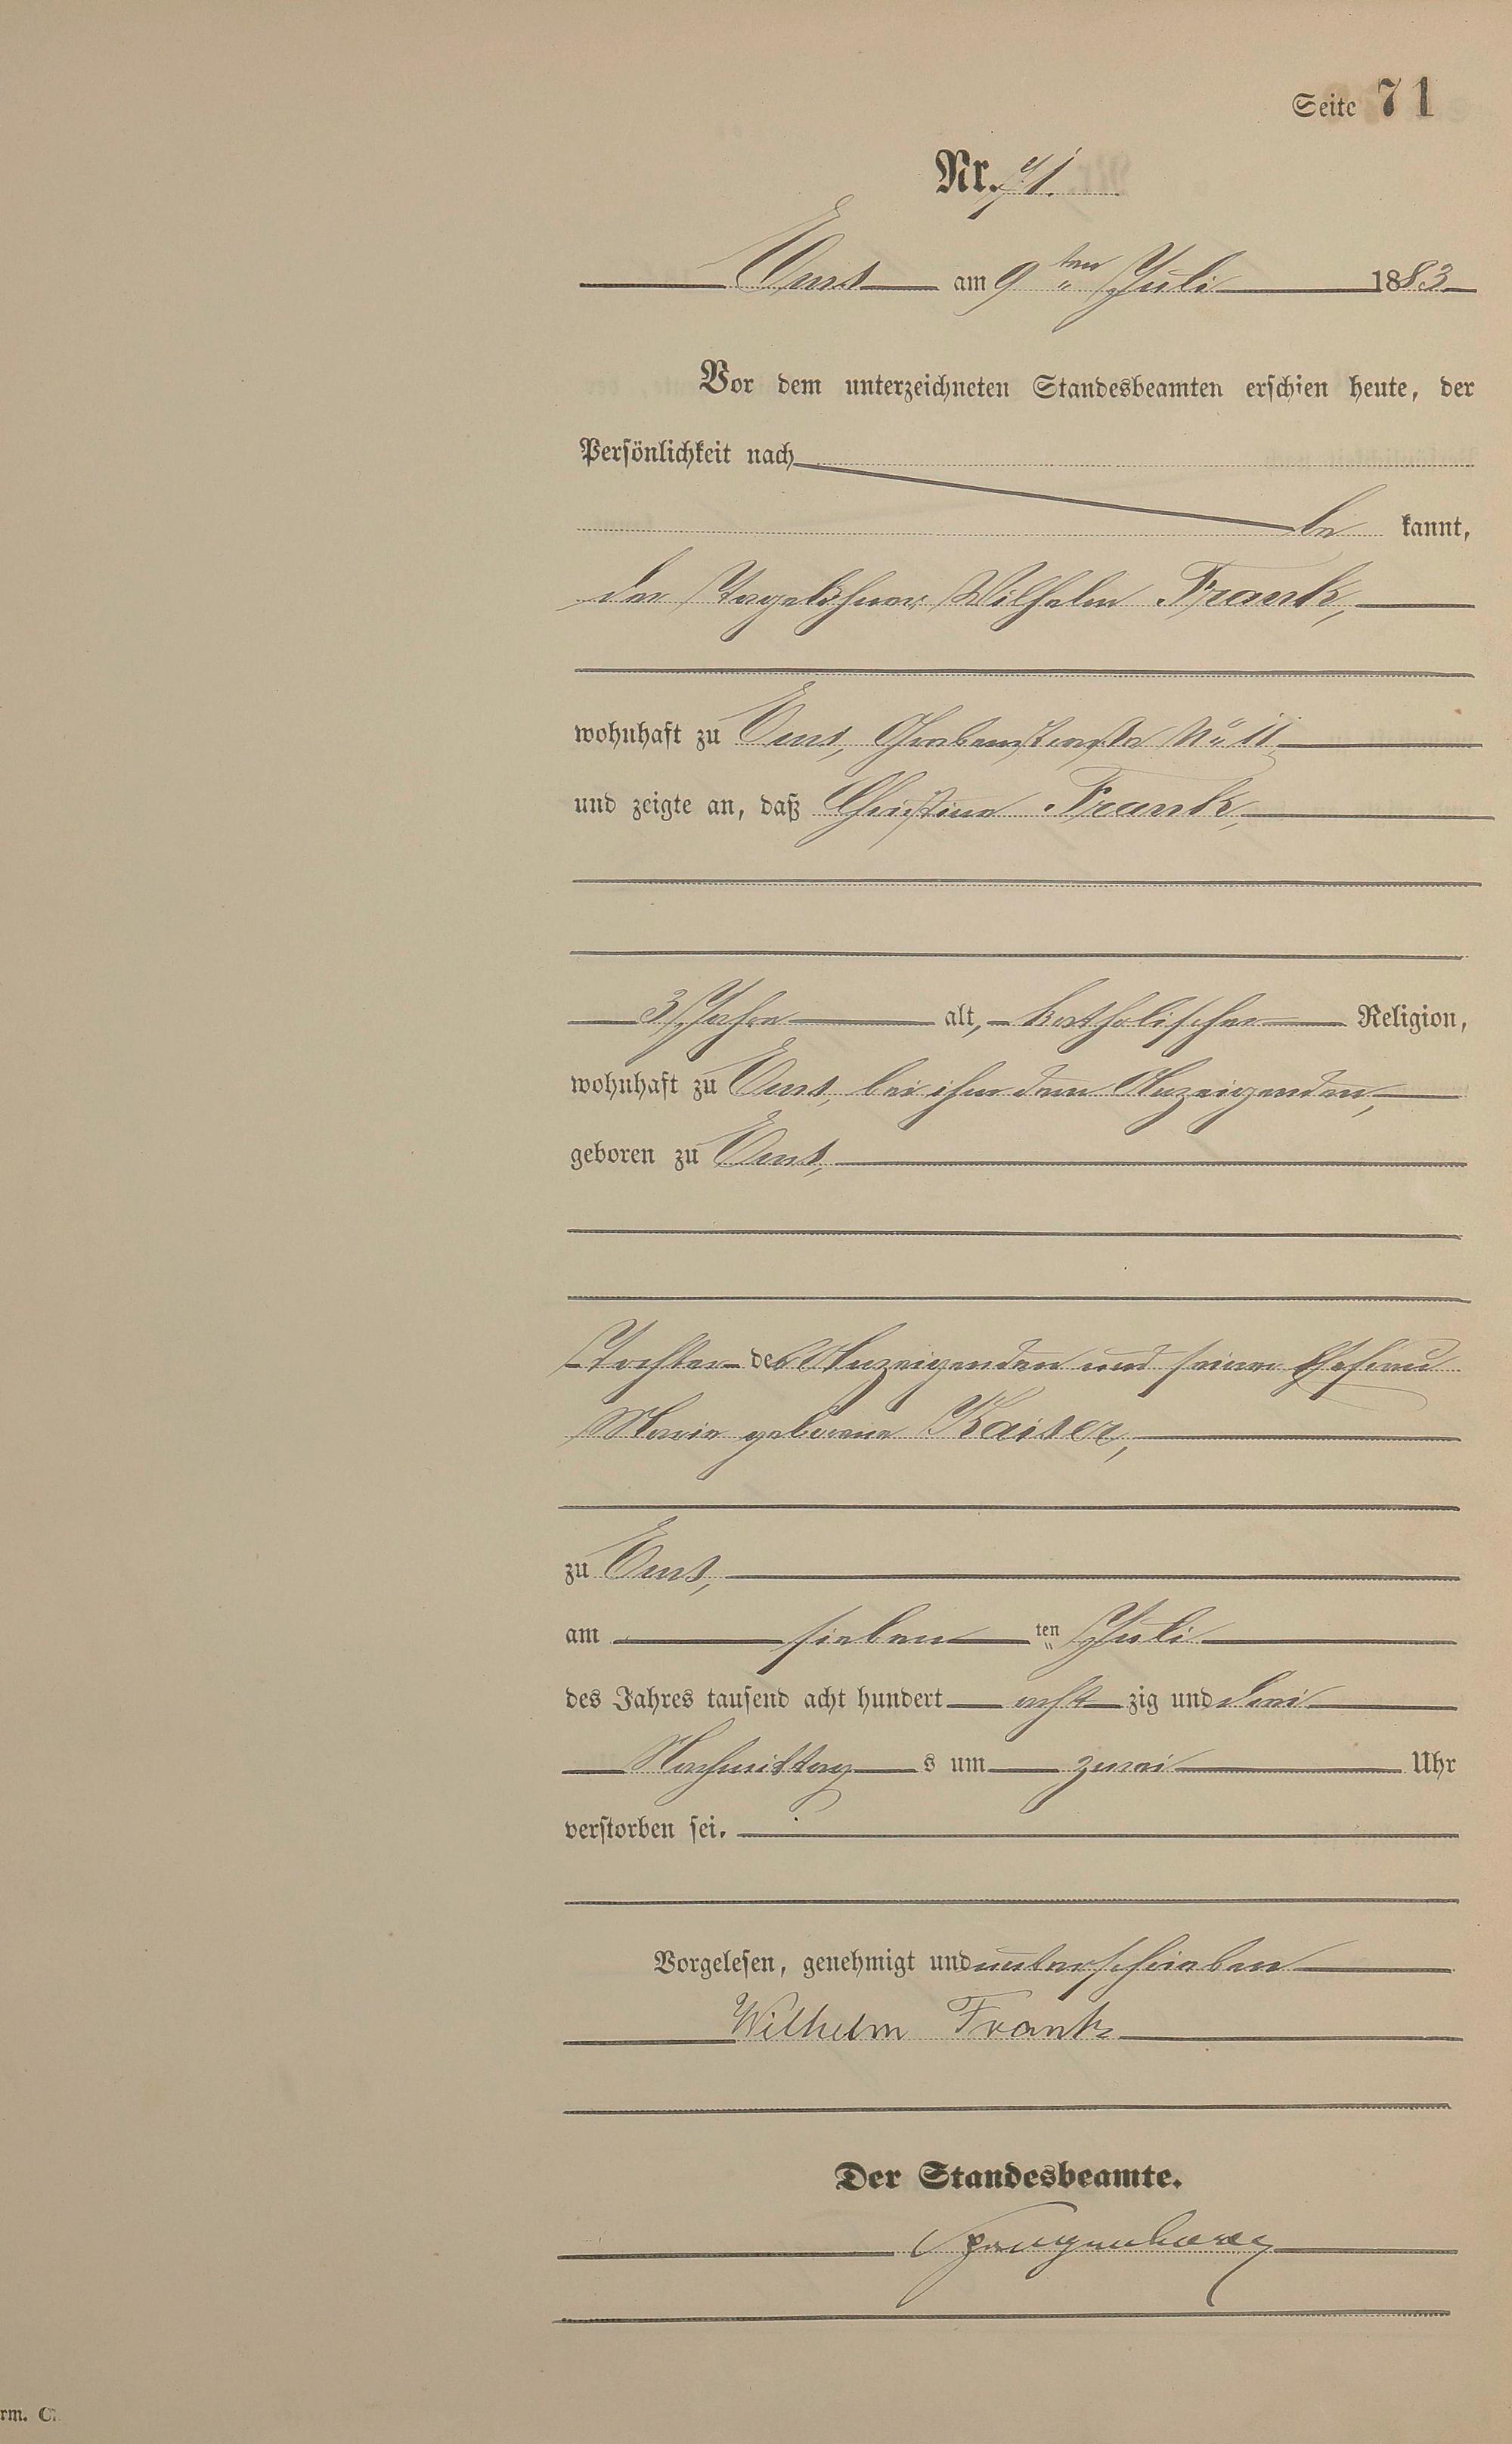 Seite 71
Nr. 71.
Ems am 9ten Juli 1883
Vor dem unterzeichneten Standesbeamten erschien heute, der
Persönlichkeit nach
be kannt,
der Tagelöhner Wilhelm Frank,
wohnhaft zu Ems, Grabenstraße No 11
und zeigte an, daß Christine Frank,
3 Jahre alt, katholischer Religion,
wohnhaft zu Ems, bei ihm dem Anzeigenden,
geboren zu Ems,
Tochter des Anzeigenden und seiner Ehefrau
Marie geborene Kaiser,
zu Ems,
am sieben ten Juli
des Jahres tausend acht hundert acht zig und drei
Nachmittag s um zwei Uhr
verstorben sei.
Vorgelesen, genehmigt und unterschrieben
Wilhelm Frank
Der Standesbeamte.
Spangenberg
rm. C.